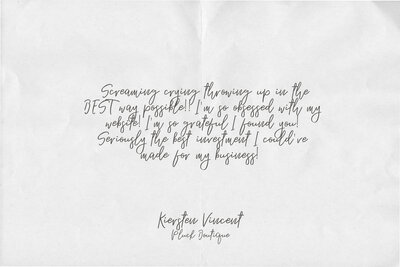 Screaming crying throwing up in the
BEST way possible!! I'm so obsessed with my
website! I'm so grateful I found you!
Seriously the best investment I could've
made for my business!
Kiersten Vincent
Pluck Boutique